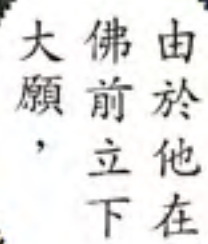 由於他在
佛前立下
大願，